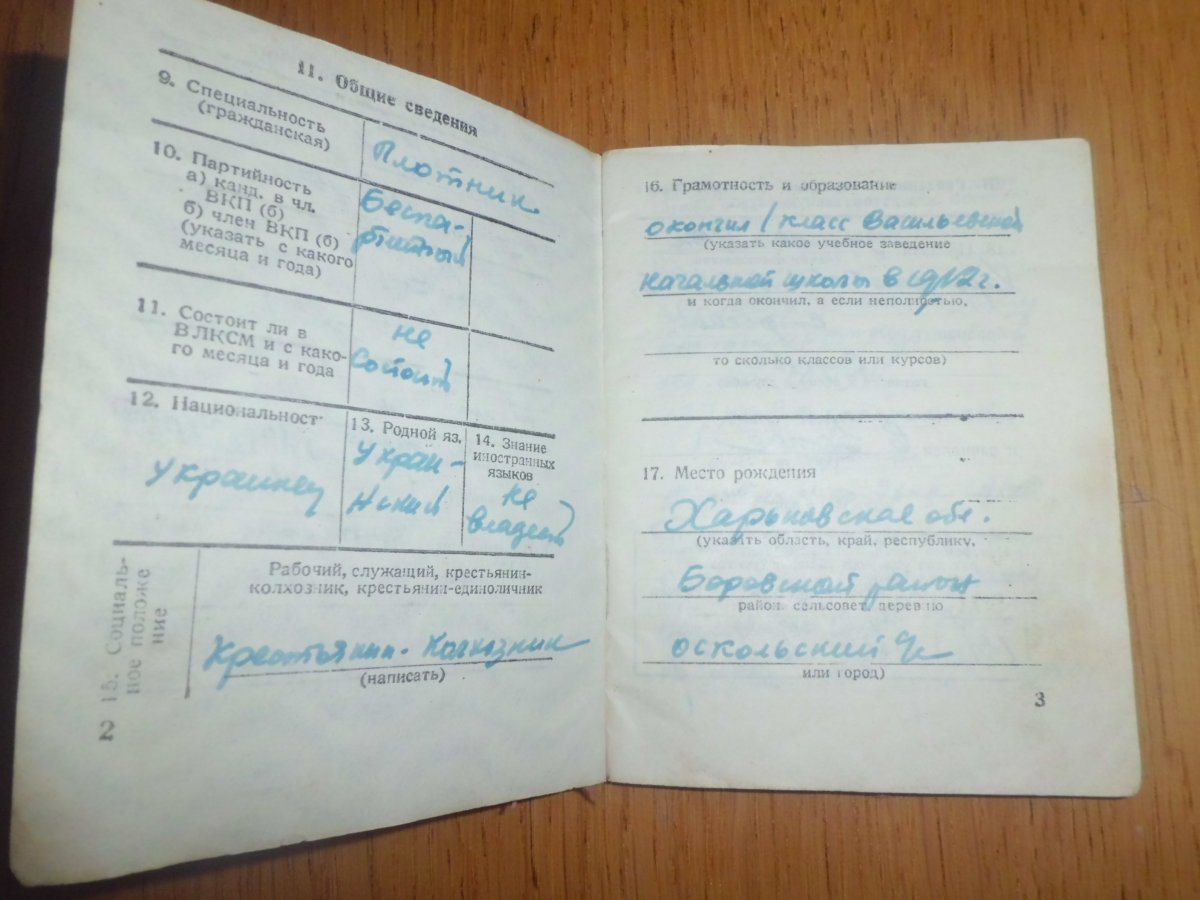 11. Общие сведения
9. Специальность
(гражданская)
Плотник
10. Партийность
а) канд. в чл.
ВКП (б)
б) член ВКП (б)
(указать с какого
месяца и года)
Беспа-
ртийный
11. Состоит ли в
ВЛКСМ и с како-
го месяца и года
не
состоит
12. Национальност
украинец
13. Родной яз.
Украи-
нский
14. Знание
иностранных
языков
не
владеет
15. Социаль-
ное положе
ние
Рабочий, служащий, крестьянин-
колхозник, крестьянин-единоличник
Крестьянин-колхозник
(написать)
2
16. Грамотность и образование
окончил 1 класс Васильевской
(указать какое учебное заведение
начальной школы в 1912 г.
и когда окончил, а если неполностью,
то сколько классов или курсов)
17. Место рождения
Харьковская обл.
(указать область, край, республику,
Боровской район
район, сельсовет, деревню
оскольский
или город)
3